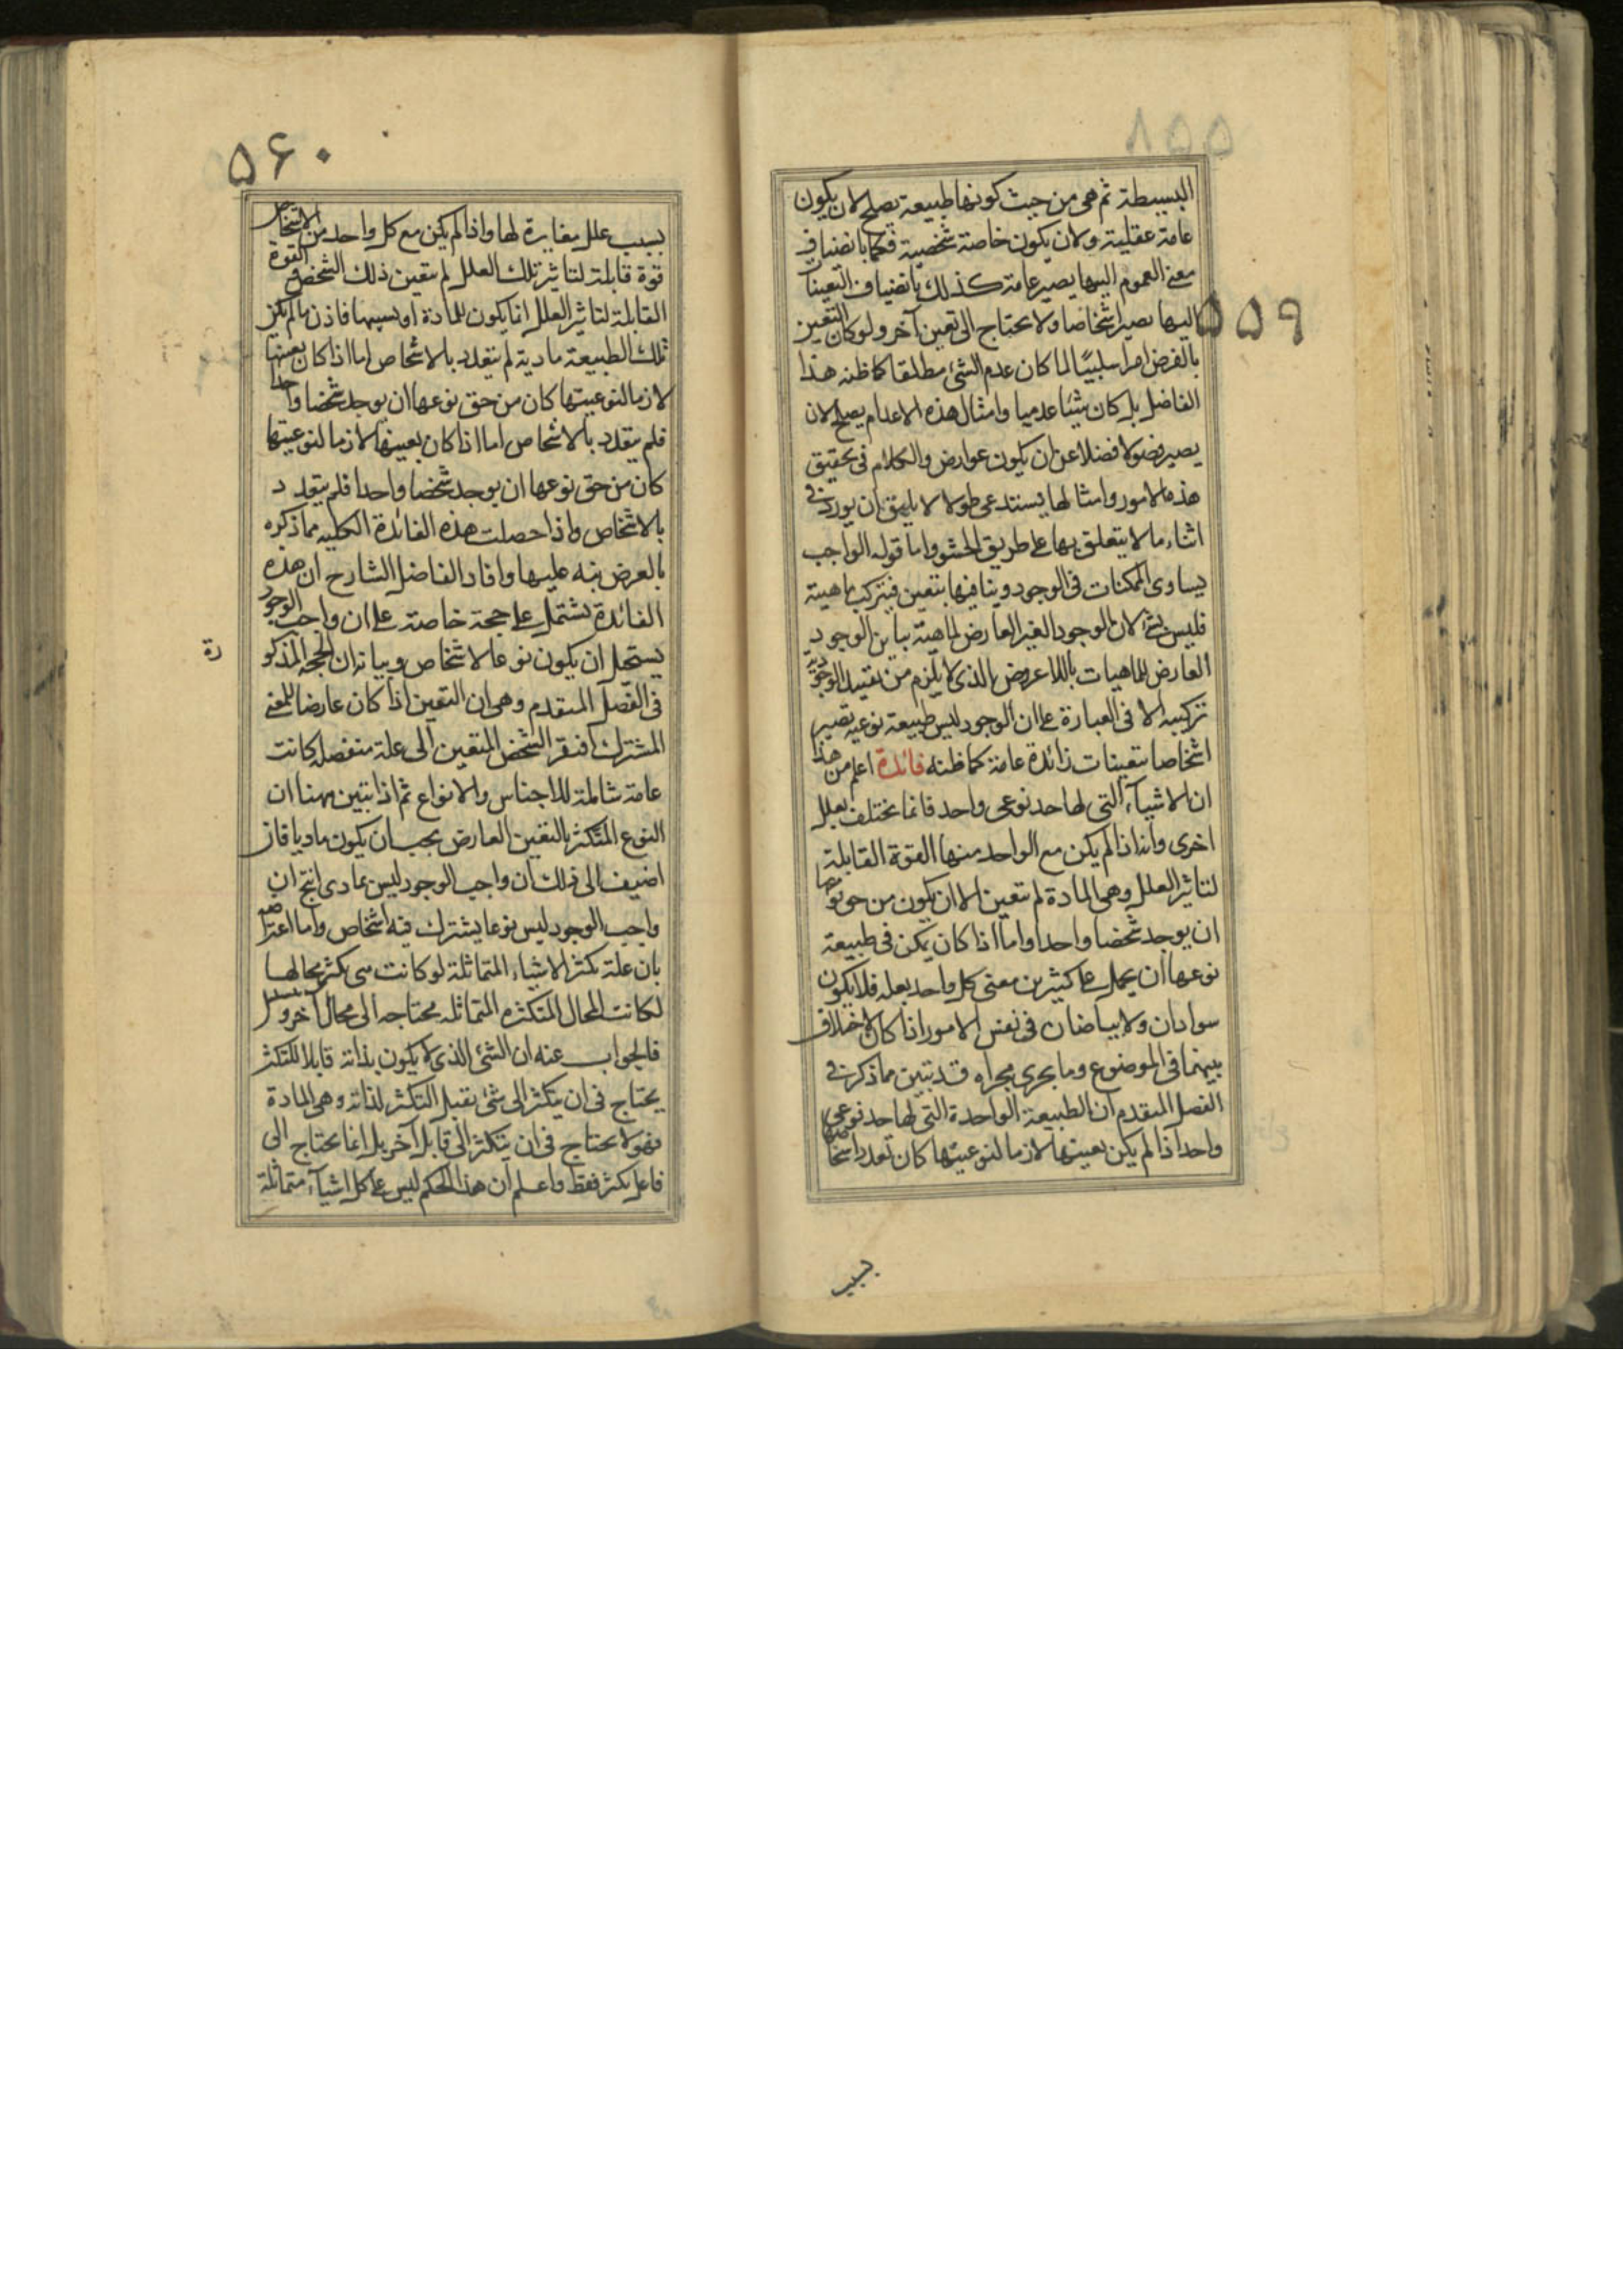 ۵۵۹
البسيطة ثم هي من حيث كونها طبيعة يصلح لان يكون
عامة عقلية ولان يكون خاصة شخصية فكما بانضياف
معنى العموم اليها يصير عامة كذلك بانضياف التعينات
اليها يصير اشخاصا ولا يحتاج الى تعين آخر ولو كان التعين
بالفرض امرا سلبيا لما كان عدم الشئ مطلقا كما ظنه هذا
الفاضل بل كان شيئا عدميا وامثال هذه الاعدام يصلح لان
يصير فصولا فضلا عن ان يكون عوارض والكلام في تحقيق
هذه الامور وامثالها يستدعى طولا لا يليق ان يورد في
اثناء ما لا يتعلق بها على طريق الحشو واما قوله الواجب
يساوى الممكنات في الوجود ويباينها بتعين فيتركب ماهيته
فليس بشئ لان الوجود الغير العارض لماهية يباين الوجود
العارض للماهيات باللاعروض الذى لا يلزم من تقييد الوجود به
تركيبه الا فى العبارة على ان الوجود ليس طبيعة نوعية تصير
اشخاصا بتعينات زائدة عامة كما ظنه فائدة اعلم من هذا
ان الاشياء التى لها حد نوعى واحد فانما يختلف بعلل
اخرى وانه اذا لم يكن مع الواحد منها القوة القابلة
لتاثير العلل وهى المادة لم يتعين الا ان يكون من حق نوعها
ان يوجد شخصا واحدا واما اذا كان يمكن فى طبيعة
نوعها ان يحمل على كثيرين معنى كل واحد بعلة فلا يكون
سوادان ولا بياضان فى نفس الامور اذا كان لا اختلاف
بينهما فى الموضوع وما يجرى مجراه قد تبين مما ذكر فى
الفصل المتقدم ان الطبيعة الواحدة التى لها حد نوعى
واحد اذا لم يكن بعينها لازما لنوعيتها كان تعدد اشخاصها
بسبب
۵۶۰
بسبب علل مغايرة لها واذا لم يكن مع كل واحد من الاشخاص
قوة قابلة لتاثير تلك العلل لم يتعين ذلك الشخص والقوة
القابلة لتاثير العلل انما يكون للمادة او بسببها فاذن ما لم يكن
تلك الطبيعة مادية لم يتعدد بالاشخاص اما اذا كان بعينها
لازما لنوعيتها كان من حق نوعها ان يوجد شخصا واحدا
فلم يتعدد بالاشخاص اما اذا كان بعينها لازما لنوعيتها
كان من حق نوعها ان يوجد شخصا واحدا فلم يتعدد
بالاشخاص واذا حصلت هذه الفائدة الكلية مما ذكره
بالعرض نبه عليها وافاد الفاضل الشارح ان هذه
الفائدة يشتمل على حجة خاصة على ان واجب الوجود
يستحيل ان يكون نوعا لاشخاص وبيانه ان الحجة المذكو
رة
فى الفصل المتقدم وهى ان التعين اذا كان عارضا للمعنى
المشترك افتقر الشخص المتعين الى علة منفصلة كانت
عامة شاملة للاجناس والانواع ثم اذا تبين ههنا ان
النوع المتكثر بالتعين العارض يجب ان يكون ماديا فان
اضيف الى ذلك ان واجب الوجود ليس بمادى انتج ان
واجب الوجود ليس نوعا يشترك فيه اشخاص واما اعتراضه
بان علة تكثر الاشياء المتماثلة لو كانت هى تكثر محالها
لكانت المحال المتكثره المتماثله محتاجه الى محال آخر وتسلسل
فالجواب عنه ان الشئ الذى لا يكون بذاته قابلا للتكثر
يحتاج فى ان يتكثر الى شئ يقبل التكثر لذاته وهى المادة
فهو لا يحتاج فى ان يتكثر الى قابل آخر بل انما يحتاج الى
فاعل يكثر فقط واعلم ان هذا الحكم ليس على كل اشياء متماثلة